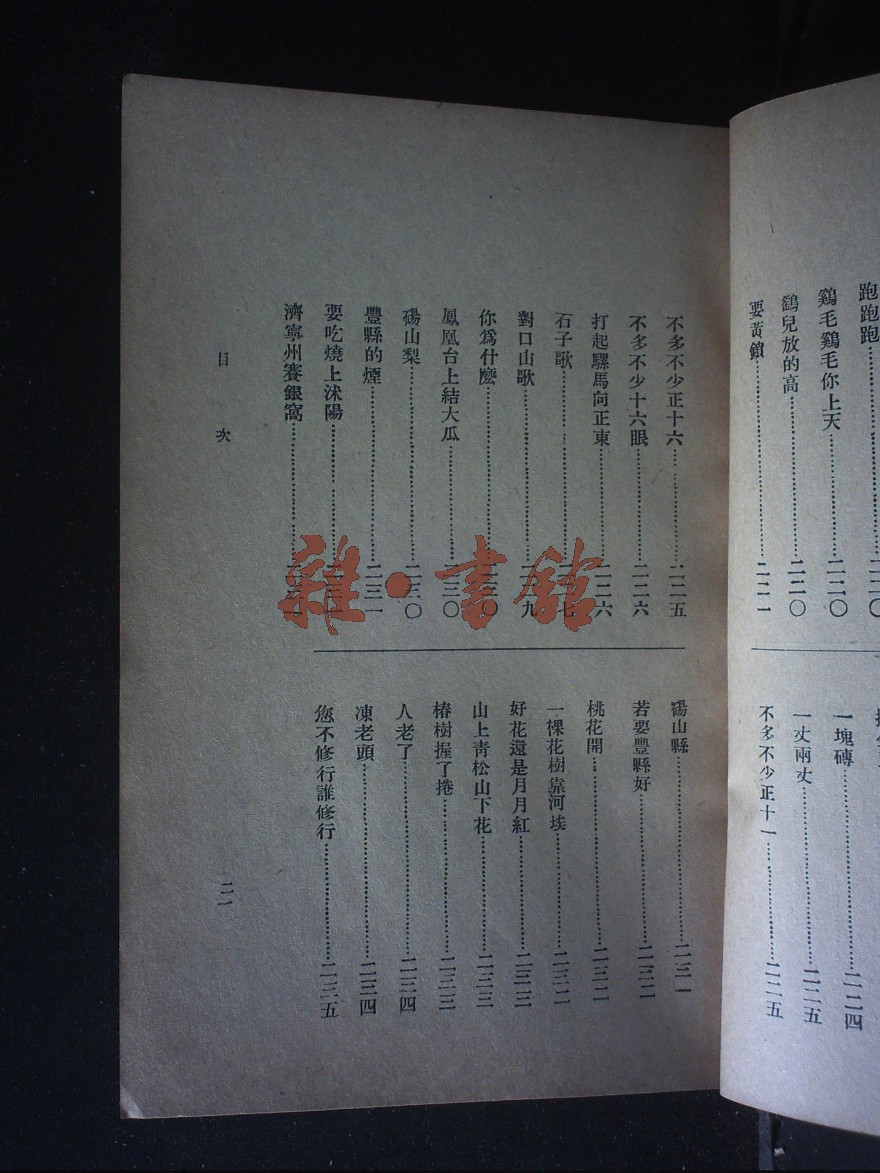 跑跑跑……二二〇
鷄毛鷄毛你上天……二二〇
鷂兒放的高……二二〇
要黃鎖……二二一
一塊磚……二二四
一丈兩丈……二二五
不多不少正十一……二二五
不多不少正十六……二二五
不多不少十六眼……二二六
打起騾馬向正東……二二六
石子歌……二二七
對口山歌……二二九
你爲什麽……二三〇
鳳凰台上結大瓜……二三〇
碭山梨……二三〇
豐縣的煙……二三一
要吃燒上沭陽……二三一
濟寧州賽銀窩……二三一
碭山縣……二三一
若要豐縣好……二三二
桃花開……二三二
一棵花樹靠河埃……二三二
好花還是月月紅……二三三
山上青松山下花……二三三
椿樹握了捲……二三三
人老了……二三四
凍老頭……二三四
您不修行誰修行……二三五
目次
二一
雜·書館